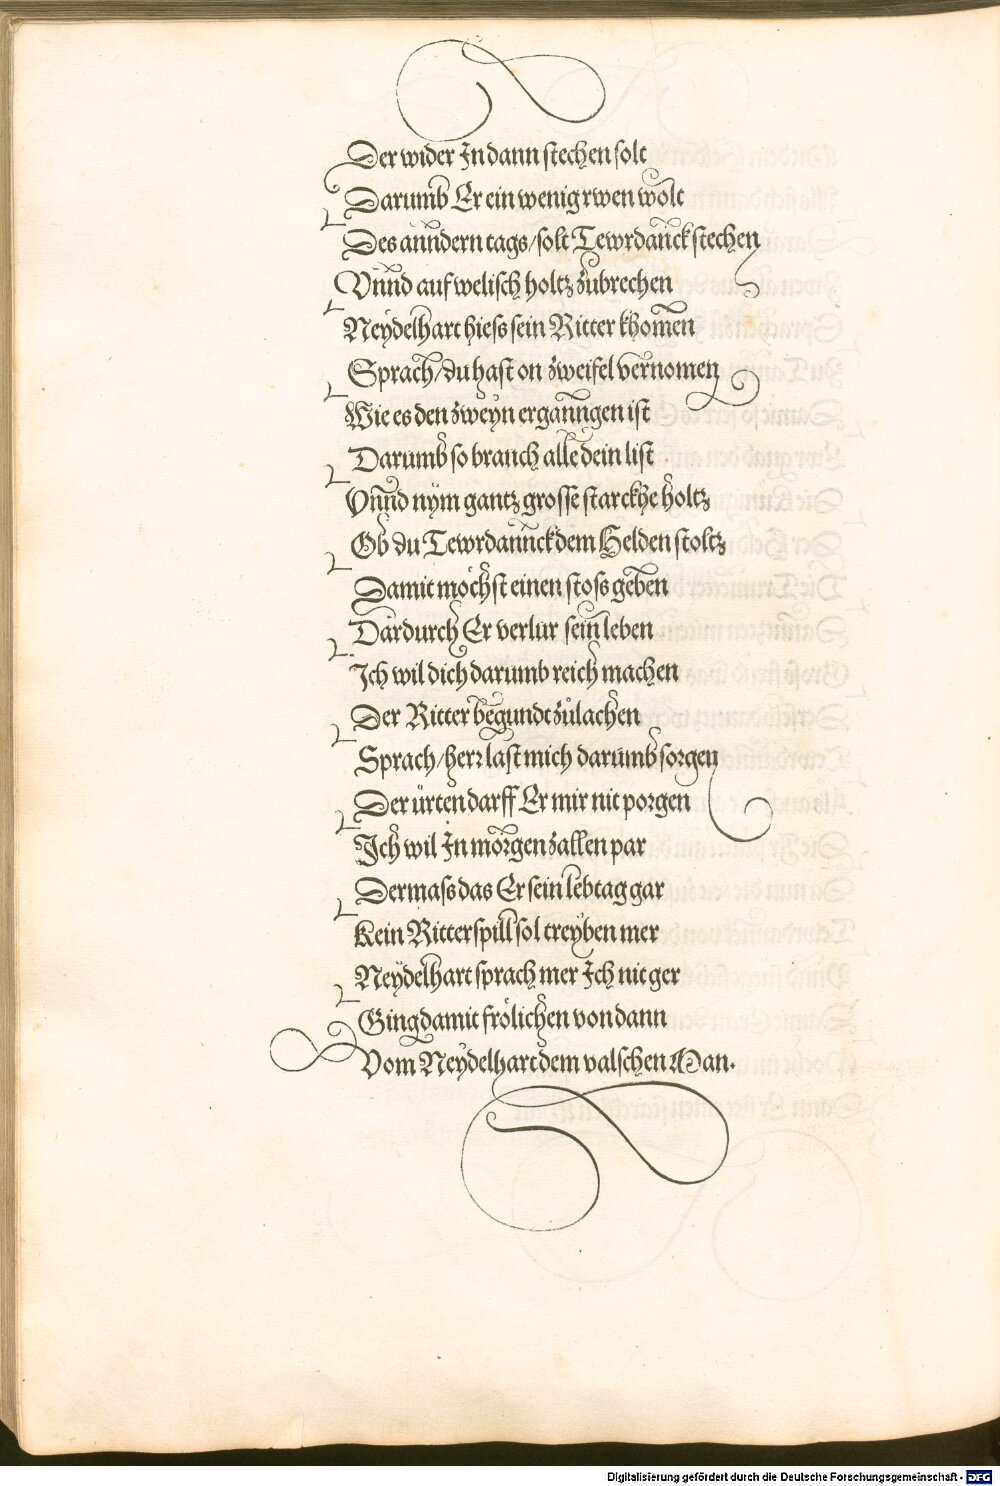 Der wider In dann stechen solt
Darumb Er ein wenig rwen wolt
Des anndern tags/solt Tewrdanck stechen
Vnnd auf welisch holtz zubrechen
Neydelhart hiess sein Ritter khomen
Sprach/du hast on zweifel vernomen
Wie es den zweyn erganngen ist
Darumb so brauch alle dein list
Vnnd nym gantz grosse starckhe holtz
Ob du Tewrdannck dem Helden stoltz
Damit möchst einen stoss geben
Dardurch Er verlur sein leben
Ich wil dich darumb reich machen
Der Ritter begundt zůlachen
Sprach/herr last mich darumb sorgen
Der ürten darff Er mir nit porgen
Ich wil In morgen zallen par
Dermass das Er sein lebtag gar
Kein Ritterspill sol treyben mer
Neydelhart sprach mer Ich nit ger
Ging damit frölichen von dann
Vom Neydelhart dem valschen Man.
Digitalisierung gefördert durch die Deutsche Forschungsgemeinschaft - DFG